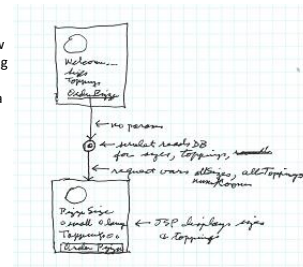 w
ng
n
Welcome...
sizes
Toppings
Order Pizza
← no params
← servlet reads DB
for sizes, toppings,
← request vars allSizes, allToppings
numRooms
Pizza Size
o small o large
Toppings o o
Order Pizza
← JSP displays sizes
& toppings